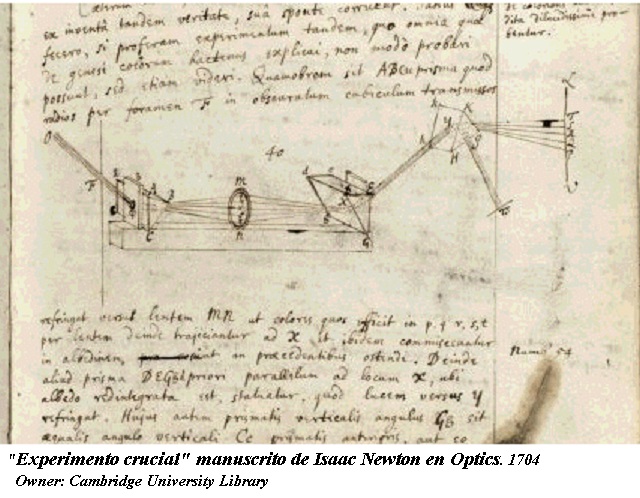 ex inventa tandem veritate, sua sponte corruent.
fecero, si proferam experimentum tandem, quo omnia quæ
de genesi colorum hactenus explicui, non modo probari
possunt, sed etiam videri. Quamobrem sit ABC prisma quod
radios per foramen F in obscuratum cubiculum transmissos
dita dilucidissime pro-
bentur.
40
O
F
M
N
C
G
Y
H
refringat versus lentem MN ut colores quos efficit in p, q, r, s, t
per lentem deinde trajiciantur ad X et ibidem commisceantur
in albedinem, in præcedentibus ostendi. Deinde
aliud prisma DEG priori parallelum ad locum X, ubi
albedo redintegrata est, statuatur, quod lucem versus Y
refringat. Hujus autem prismatis verticalis angulus G sit
æqualis angulo verticali C prismatis anterioris, aut eo
54
"Experimento crucial" manuscrito de Isaac Newton en Optics. 1704
Owner: Cambridge University Library